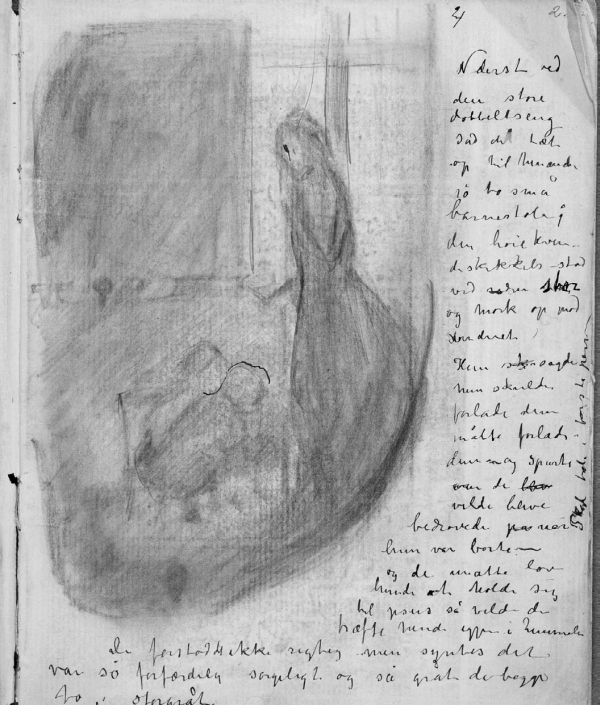 4 2
Nederst ved
den store
dobbeltseng
sad der tæt
op til hinanden
jo to små
barnestole,
den høie kvin-
deskikkelse stod
ved siden stor
og mørk op mod
vinduet
Hun sagde
hun skulde
forlade dem
måtte forlade
dem og spurte
om de
vilde blive
bedrøvede når
hun var borte
og de måtte love
hende at holde sig
til Jesus så vilde de
træffe hende igjen i himmelen
De forstod ikke rigtig men syntes det
var så forfærdelig sørgeligt og så gråt de begge
to i storgråt.